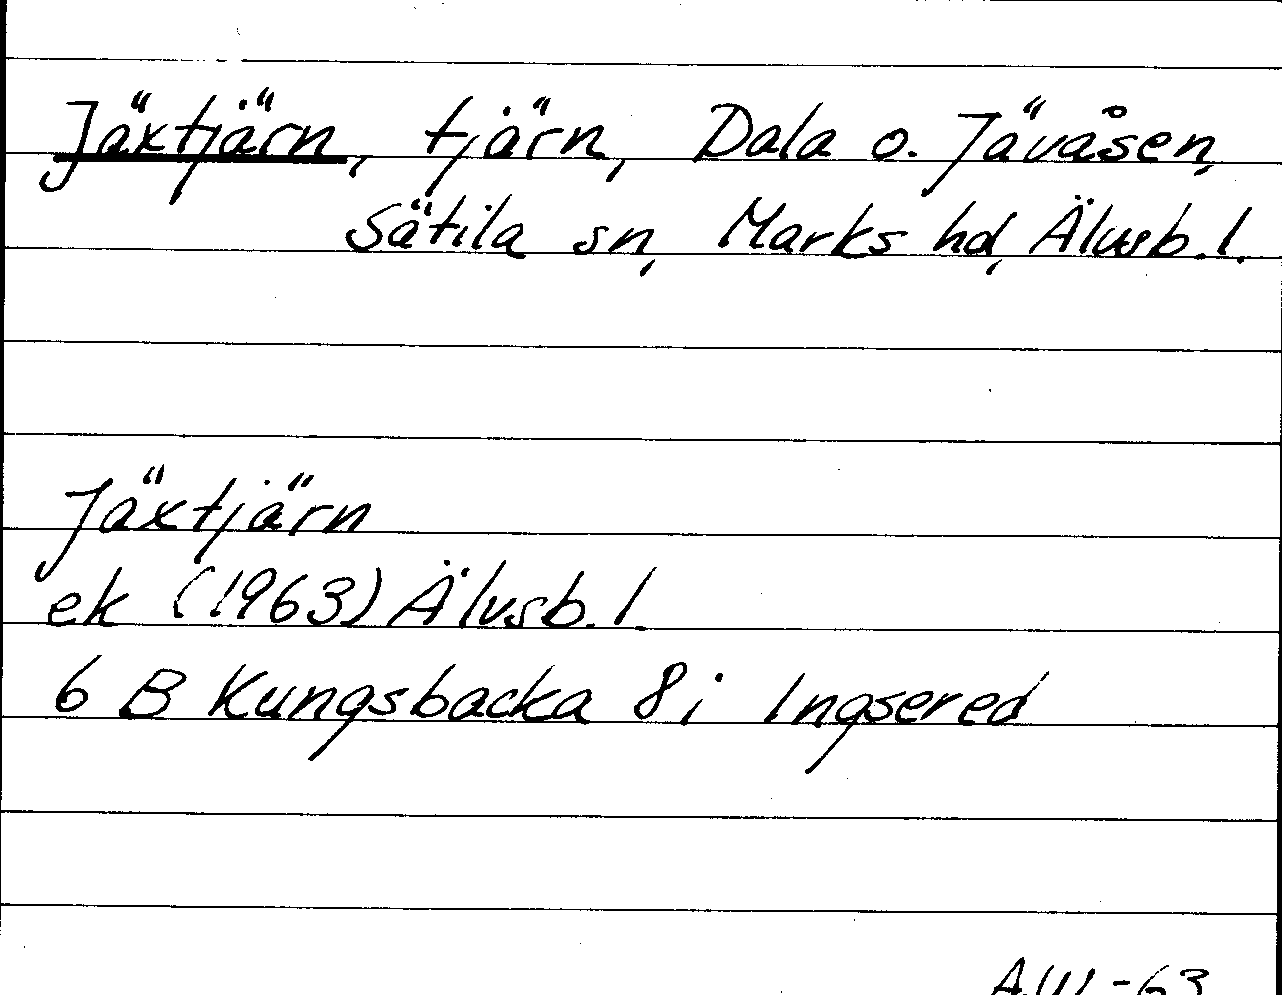 Jäxtjärn, tjärn, Dala o. Jävåsen,
Sätila sn, Marks hd, Älvsb.l.
Jäxtjärn
ek (1963) Älvsb.l.
6 B Kungsbacka 8 i Ingsered